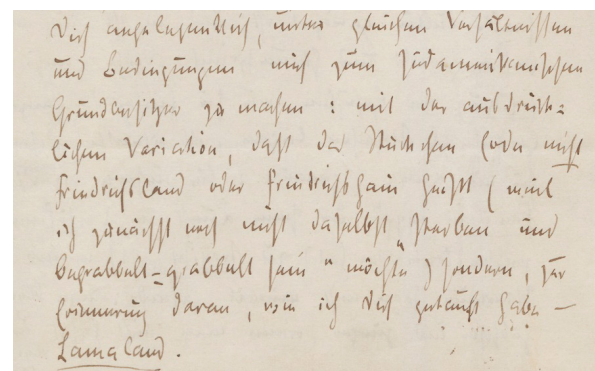 Dich angelegentlich, unter gleichen Verhältnissen
und Bedingungen mich zum südamerikanischen
Grundbesitzer zu machen: mit der ausdrück=
lichen Variation, daß das Stückchen Erde nicht
Friedrichsland oder Friedrichshain heißt (weil
ich zunächst noch nicht daselbst sterben und
begrabbelt-grabbelt sein „ möchte) sondern, zur
Erinnerung daran, wie ich Dich getauft habe —
Lamaland.